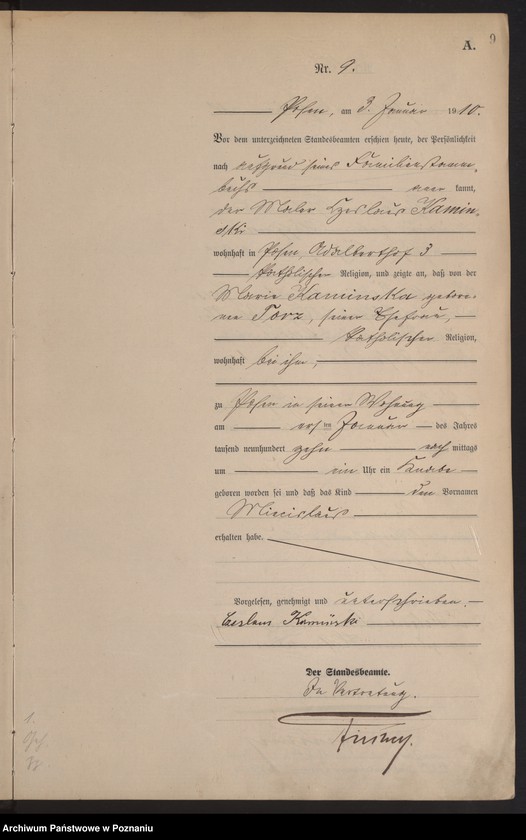 9
A.
Nr. 9.
Posen, am 3. Januar 1910.
Vor dem unterzeichneten Standesbeamten erschien heute, der Persönlichkeit
nach auf Grund seines Familienstamm-
buchs kannt,
der Maler Czeslaus Kamin-
ski
wohnhaft in Posen, Adalberthof 3
katholischer Religion, und zeigte an, daß von der
Marie Kaminska gebore-
nen Torz, seiner Ehefrau,
katholischer Religion,
wohnhaft bei ihm,
zu Posen in seiner Wohnung
am ersten Januar des Jahres
tausend neunhundert zehn nach mittags
um ein Uhr ein Knabe
geboren worden sei und daß das Kind den Vornamen
Miecislaus
erhalten habe.
Vorgelesen, genehmigt und unterschrieben.
Ceslaus Kamiński
Der Standesbeamte.
In Vertretung.
Archiwum Państwowe w Poznaniu